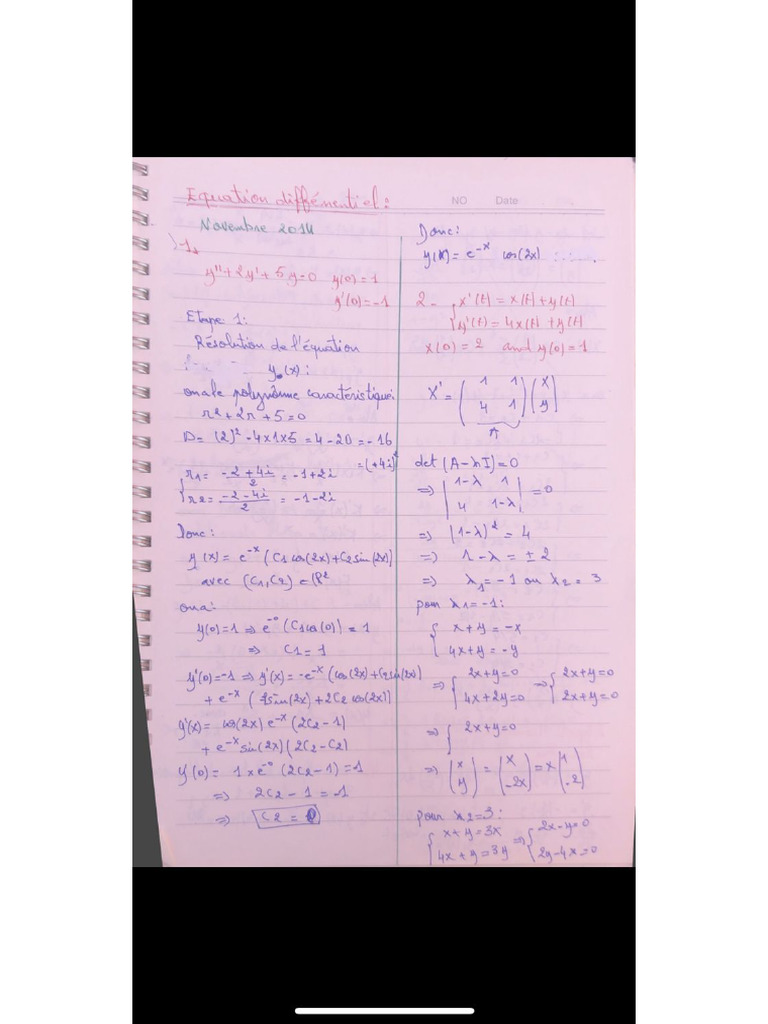 Equation différentiel:
NO Date
Novembre 2014
1.
y'' + 2y' + 5y = 0 y(0) = 1
y'(0) = -1
Etape 1:
Résolution de l'équation
y₀(x):
ona le polynôme caractéristique:
r² + 2r + 5 = 0
D = (2)² - 4×1×5 = 4 - 20 = -16
= (+4i)²
{ r1 = (-2+4i)/2 = -1+2i
r2 = (-2-4i)/2 = -1-2i
Donc:
y(x) = e^-x (C1 cos(2x) + C2 sin(2x))
avec (C1, C2) ∈ ℝ²
ona:
y(0) = 1 => e^-0 (C1 cos(0)) = 1
=> C1 = 1
y'(0) = -1 => y'(x) = -e^-x (cos(2x) + C2 sin(2x))
+ e^-x ( sin(2x) + 2C2 cos(2x))
y'(x) = cos(2x) e^-x (2C2 - 1)
+ e^-x sin(2x) (2C2 - C2)
y'(0) = 1 × e^-0 (2C2 - 1) = -1
=> 2C2 - 1 = -1
=> C2 = 0
Donc:
y(x) = e^-x cos(2x) ......
2 - { x'(t) = x(t) + y(t)
y'(t) = 4x(t) + y(t)
x(0) = 2 and y(0) = 1
X' = ( 1 1 ) ( x )
( 4 1 ) ( y )
A
det (A - λI) = 0
=> | 1-λ 1 | = 0
| 4 1-λ |
=> (1-λ)² = 4
=> 1 - λ = ± 2
=> λ1 = -1 ou λ2 = 3
pour λ1 = -1:
{ x + y = -x
4x + y = -y
=> { 2x + y = 0 => { 2x + y = 0
4x + 2y = 0 2x + y = 0
=> { 2x + y = 0
=> ( x ) = ( x ) = x ( 1 )
( y ) ( -2x ) ( -2 )
pour λ2 = 3:
{ x + y = 3x => { 2x - y = 0
4x + y = 3y 2y - 4x = 0